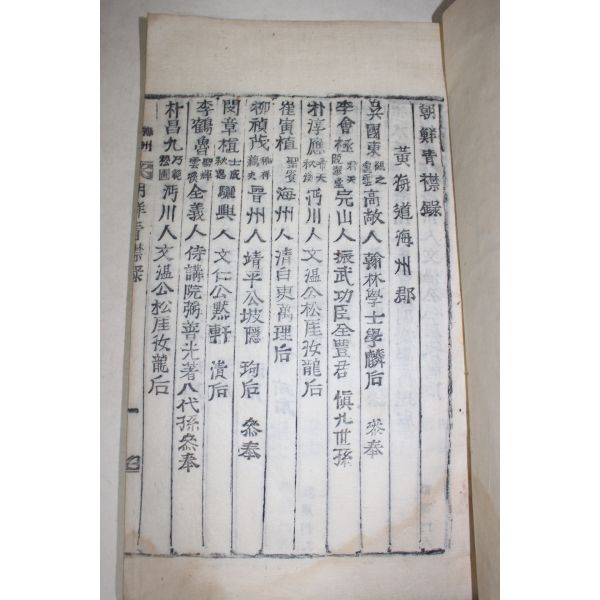 朝鮮青襟錄
黃海道海州郡
吳國東 高敞人翰林學士學麟后 參奉
李會極 君天 完山人振武功臣全豊君 愼九世孫
朴淳應 沔川人文溫公松厓汝龍后
崔寅植 聖賓 海州人清白吏萬理后
柳禎茂 晉州人靖平公坡隱 珣后 參奉
閔章植 士威 驪興人文仁公默軒 漬后
李鶴魯 全義人侍講院弼善光著八代孫參奉
朴昌九 乃範 松圃 沔川人文溫公松厓汝龍后
海州 朝鮮青襟錄 一